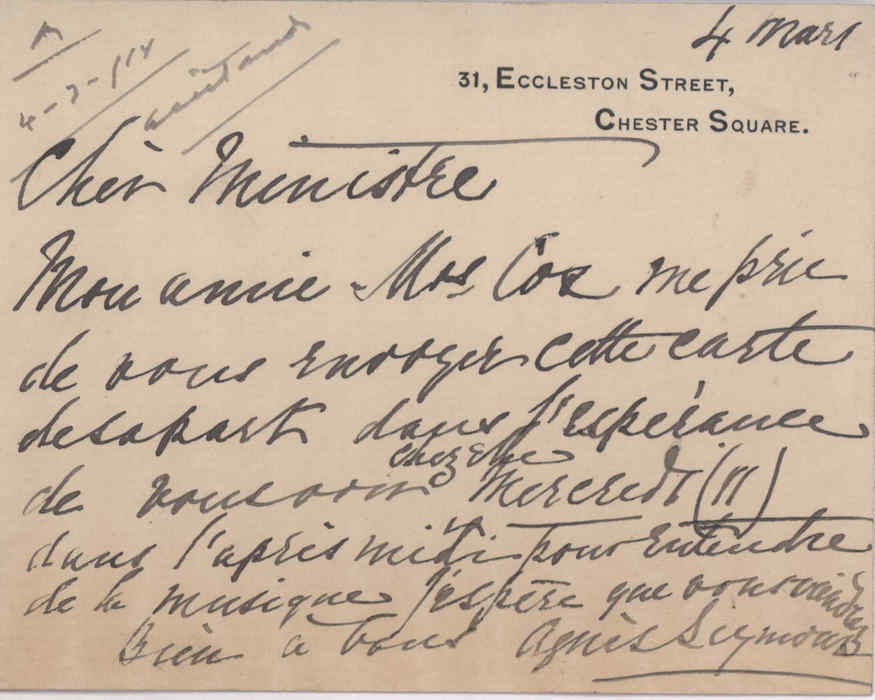 4 Mars
4-3-14
31, ECCLESTON STREET,
CHESTER SQUARE.
Cher Ministre
Mon amie Mrs Cox me prie
de vous envoyer cette carte
de sa part dans l'espérance
chez Elle
de vous voir Mercredi (11)
dans l'après midi pour Entendre
de la musique J'espère que vous viendrez
Bien à vous Agnès Seymour